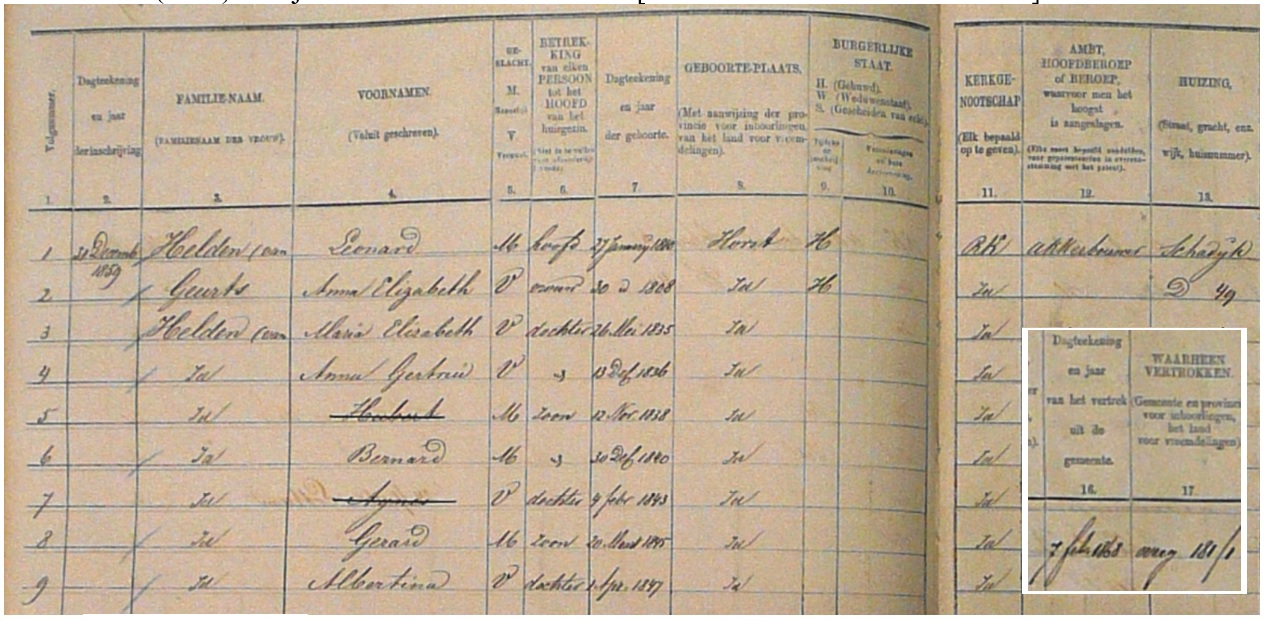 Volgnummer.
1.
Dagteekening
en jaar
der inschrijving
2.
FAMILIE-NAAM.
(FAMILIENAAM DER VROUW).
3.
VOORNAMEN.
(Voluit geschreven).
4.
GE-
SLACHT.
M.
V.
5.
BETREK-
KING
van elken
PERSOON
tot het
HOOFD
van het
huisgezin.
6.
Dagteekening
en jaar
der geboorte.
7
GEBOORTE-PLAATS.
(Met aanwijzing der pro-
vincie voor inboorlingen,
van het land voor vreem-
delingen).
8.
BURGERLIJKE
STAAT.
H. (Gehuwd).
W. (Weduwenstaat).
S. (Gescheiden van echt).
9.
10.
KERKGE-
NOOTSCHAP
(Elk bepaald
op te geven).
11.
AMBT,
HOOFDBEROEP
of BEROEP,
waarvoor men het
hoogst
is aangeslagen.
12.
HUIZING,
(Straat, gracht, enz.
wijk, huisnummer).
13.
1 31 Decemb Helden (van Leonard M hoofd 27 January Horst H RK akkerbouwer Schadijk
1859
2 Geurts Anna Elizabeth V vrouw 30 d 1808 Id H Id D 49
3 Helden (van Maria Elisabeth V dochter 26 Mei 1835 Id Id
4 Id Anna Gertruid V " 13 1836 Id Id
5 Id Hubert M zoon 12 Nov. 1838 Id Id
6 Id Bernard M " 30 1840 Id Id
7 Id Agnes V dochter 4 febr 1843 Id Id
8 Id Gerard M zoon 20 Maart 1845 Id Id
9 Id Albertina V dochter 1 Apr. 1847 Id Id
Dagteekening
en jaar
van het vertrek
uit de
gemeente.
16.
WAARHEEN
VERTROKKEN.
(Gemeente en provincie
voor inboorlingen,
het land
voor vreemdelingen)
17
7 feb. 1868 overg 181/1